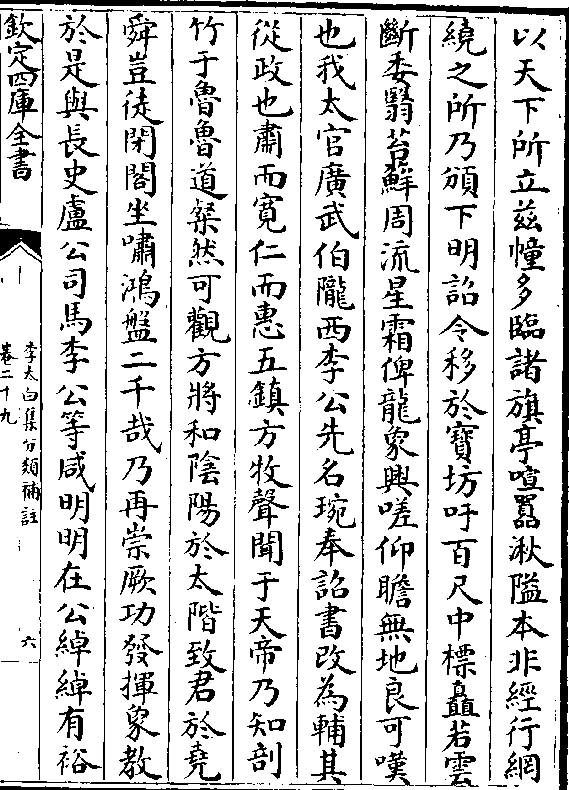 以天下所立兹幢多臨諸旗亭喧囂湫隘本非經行網
繞之所乃頒下明詔令移於寶坊吁百尺中標矗若雲
斷委翳苔蘚周流星霜俾龍象興嗟仰瞻無地良可嘆
也我太官廣武伯隴西李公先名琬奉詔書改為輔其
從政也肅而寛仁而惠五鎮方牧聲聞于天帝乃知剖
竹于魯魯道粲然可觀方將和陰陽於太階致君於堯
舜豈徒閉閤坐嘯鴻盤二千哉乃再崇厥功發揮象教
於是與長史盧公司馬李公等咸明明在公綽綽有裕
欽定四庫全書
李太白集分類補註
卷二十九
六